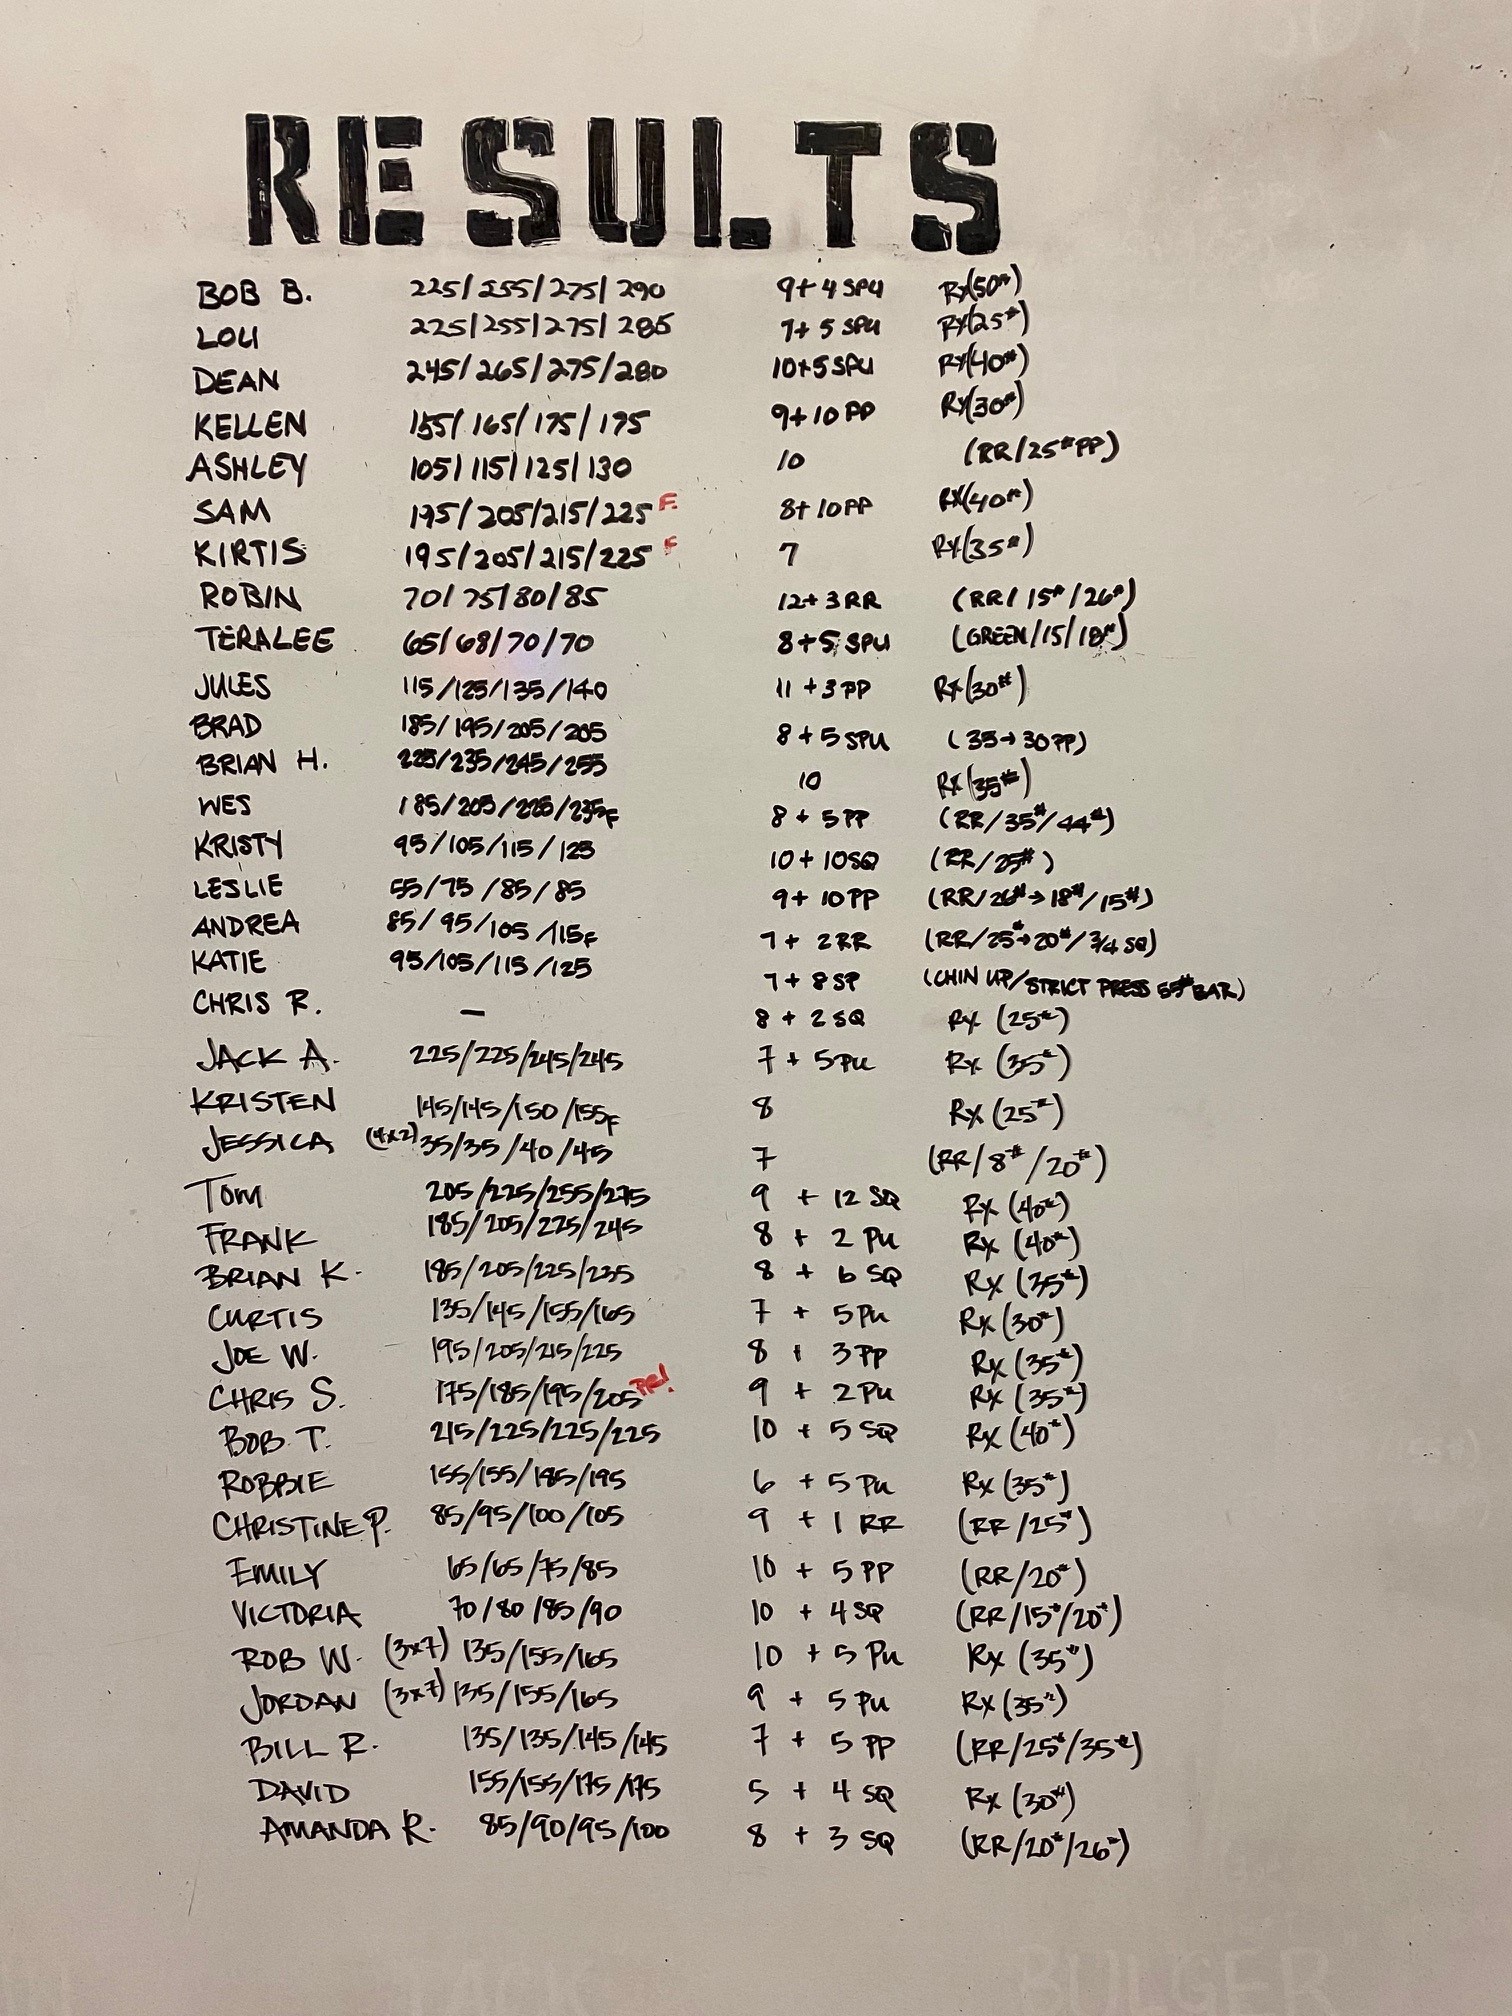 RESULTS
BOB B. 225/255/275/290 9+4 SPU Rx(50#)
LOU 225/255/275/285 7+5 SPU Rx(25#)
DEAN 245/265/275/280 10+5 SPU Rx(40#)
KELLEN 155/165/175/175 9+10 PP Rx(30#)
ASHLEY 105/115/125/130 10 (RR/25# PP)
SAM 195/205/215/225 F 8+10 PP Rx(40#)
KIRTIS 195/205/215/225 F 7 Rx(35#)
ROBIN 70/75/80/85 12+3 RR (RR/15#/26#)
TERALEE 65/68/70/70 8+5 SPU (GREEN/15/18#)
JULES 115/125/135/140 11+3 PP Rx(30#)
BRAD 185/195/205/205 8+5 SPU (35→30 PP)
BRIAN H. 225/235/245/255 10 Rx(35#)
WES 185/205/225/235F 8+5 PP (RR/35#/44#)
KRISTY 95/105/115/125 10+10 SQ (RR/25#)
LESLIE 55/75/85/85 9+10 PP (RR/26#→18#/15#)
ANDREA 85/95/105/115F 7+2 RR (RR/25#→20#/3/4 SQ)
KATIE 95/105/115/125 7+8 SP (CHIN UP/STRICT PRESS 55# BAR)
CHRIS R. – 8+2 SQ Rx (25#)
JACK A. 225/225/245/245 7+5 PU Rx (35#)
KRISTEN 145/145/150/155F 8 Rx (25#)
JESSICA (4x2) 35/35/40/45 7 (RR/8#/20#)
Tom 205/225/255/275 9 + 12 SQ Rx (40#)
FRANK 185/205/225/245 8 + 2 PU Rx (40#)
BRIAN K. 185/205/225/235 8 + 6 SQ Rx (35#)
CURTIS 135/145/155/165 7 + 5 PU Rx (30#)
JOE W. 195/205/215/225 8 + 3 PP Rx (35#)
CHRIS S. 175/185/195/205 PR! 9 + 2 PU Rx (35#)
BOB T. 215/225/225/225 10 + 5 SQ Rx (40#)
ROBBIE 155/155/185/195 6 + 5 PU Rx (35#)
CHRISTINE P. 85/95/100/105 9 + 1 RR (RR/25#)
EMILY 65/65/75/85 10 + 5 PP (RR/20#)
VICTORIA 70/80/85/90 10 + 4 SQ (RR/15#/20#)
ROB W. (3x7) 135/155/165 10 + 5 PU Rx (35#)
JORDAN (3x7) 135/155/165 9 + 5 PU Rx (35#)
BILL R. 135/135/145/145 7 + 5 PP (RR/25#/35#)
DAVID 155/155/175/175 5 + 4 SQ Rx (30#)
AMANDA R. 85/90/95/100 8 + 3 SQ (RR/20#/26#)
BULGER